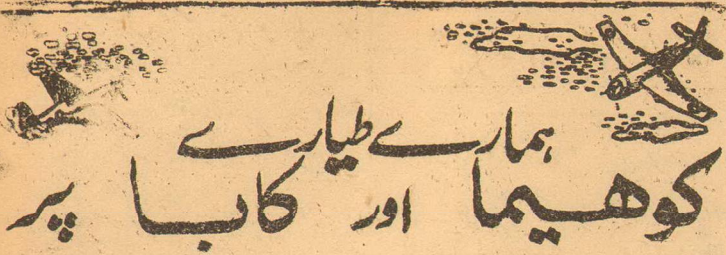 ہمارے طیارے
کوھیما اور کابا پر